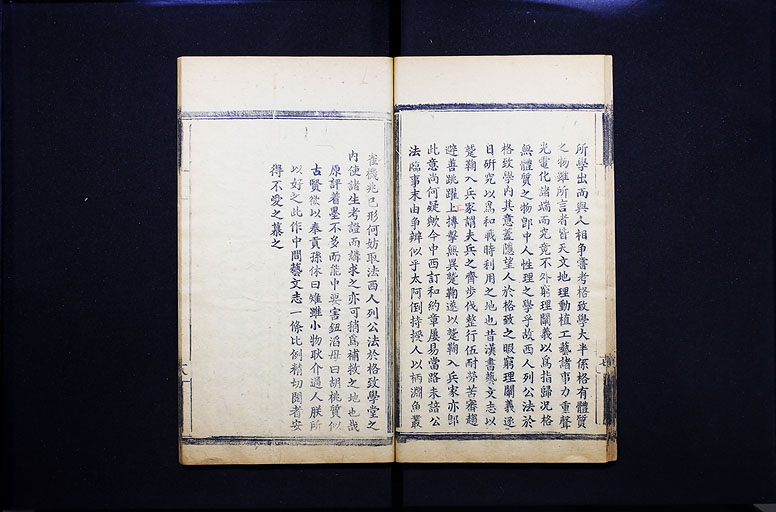 所學出而與人相爭嘗考格致學大半係格有體質
之物雖所言者皆天文地理動植工藝諸事力重聲
光電化諸端而究竟不外窮理闡義以爲指歸况格
無體質之物卽中人性理之學乎故西人列公法於
格致學內其意蓋隱望人於格致之暇窮理闡義逐
日研究以爲和戰時利用之地也昔漢書藝文志以
蹵鞠入兵家謂夫兵之齊步伐整行伍耐勞苦審趨
避善跳躍上搏擊無異蹵鞠遂以蹵鞠入兵家亦卽
此意尚何疑歟今中西訂和約章屢易當路未諳公
法臨事末由争辨似乎太阿倒持授人以柄淵魚叢
雀機兆已形何妨取法西人列公法於格致學堂之
內使諸生考證而講求之亦可稍爲補救之地也哉
原評着墨不多而能中要害鈕滔母曰胡桃質似
古賢欲以奉貢孫休曰雉雖小物耿介過人朕所
以好之此作中間藝文志一條比例精切閱者安
得不愛之慕之